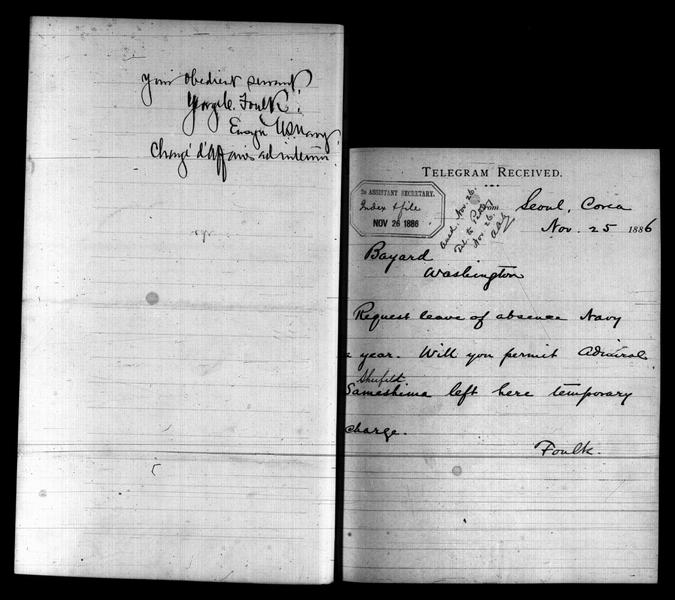 Your obedient servant
George C. Foulk.
Ensign U.S. Navy.
Chargé d'Affaires ad interim
TELEGRAM RECEIVED.
2D ASSISTANT SECRETARY.
Index & file
NOV 26 1886
Ansd. Nov. 26.
Nov. 26.
From Seoul, Corea
Nov. 25 1886
Bayard
Washington
Request leave of absence Navy
a year. Will you permit Admiral
Shufeldt
Sameshima left here temporary
charge.
Foulk.